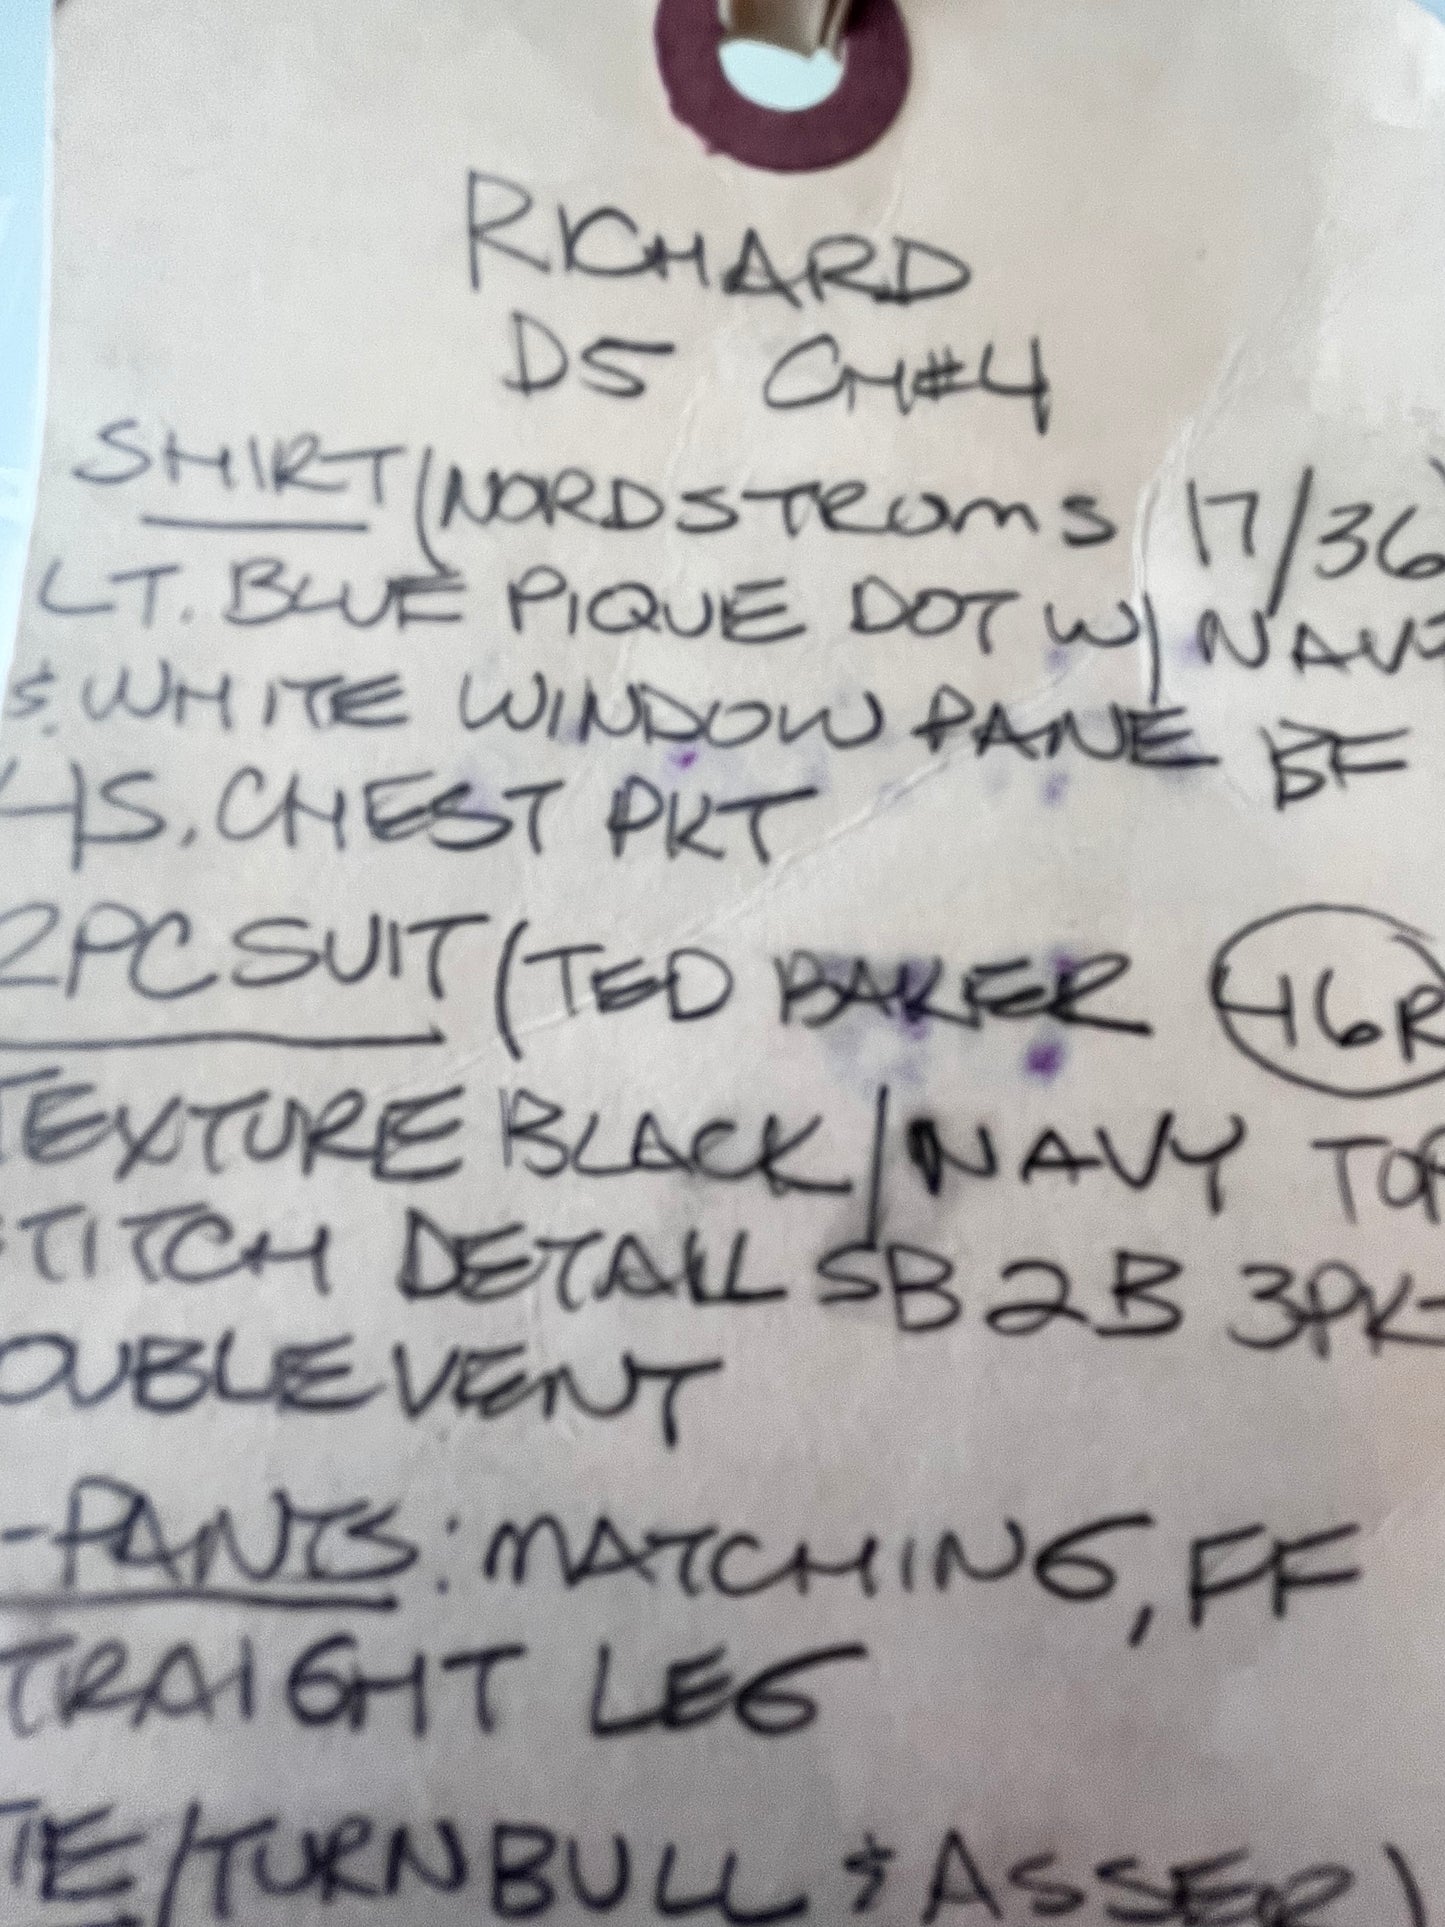 RICHARD
D5 CH#4
SHIRT (NORDSTROMS 17/36)
LT. BLUE PIQUE DOT W/ NAVY
& WHITE WINDOW PANE BF
HS, CHEST PKT
2PC SUIT (TED BAKER 46R
TEXTURE BLACK/NAVY TOP
STITCH DETAIL SB 2B 3PK-
OUBLE VENT
-PANTS: MATCHING, FF
TRAIGHT LEG
TIE/TURNBULL & ASSER)